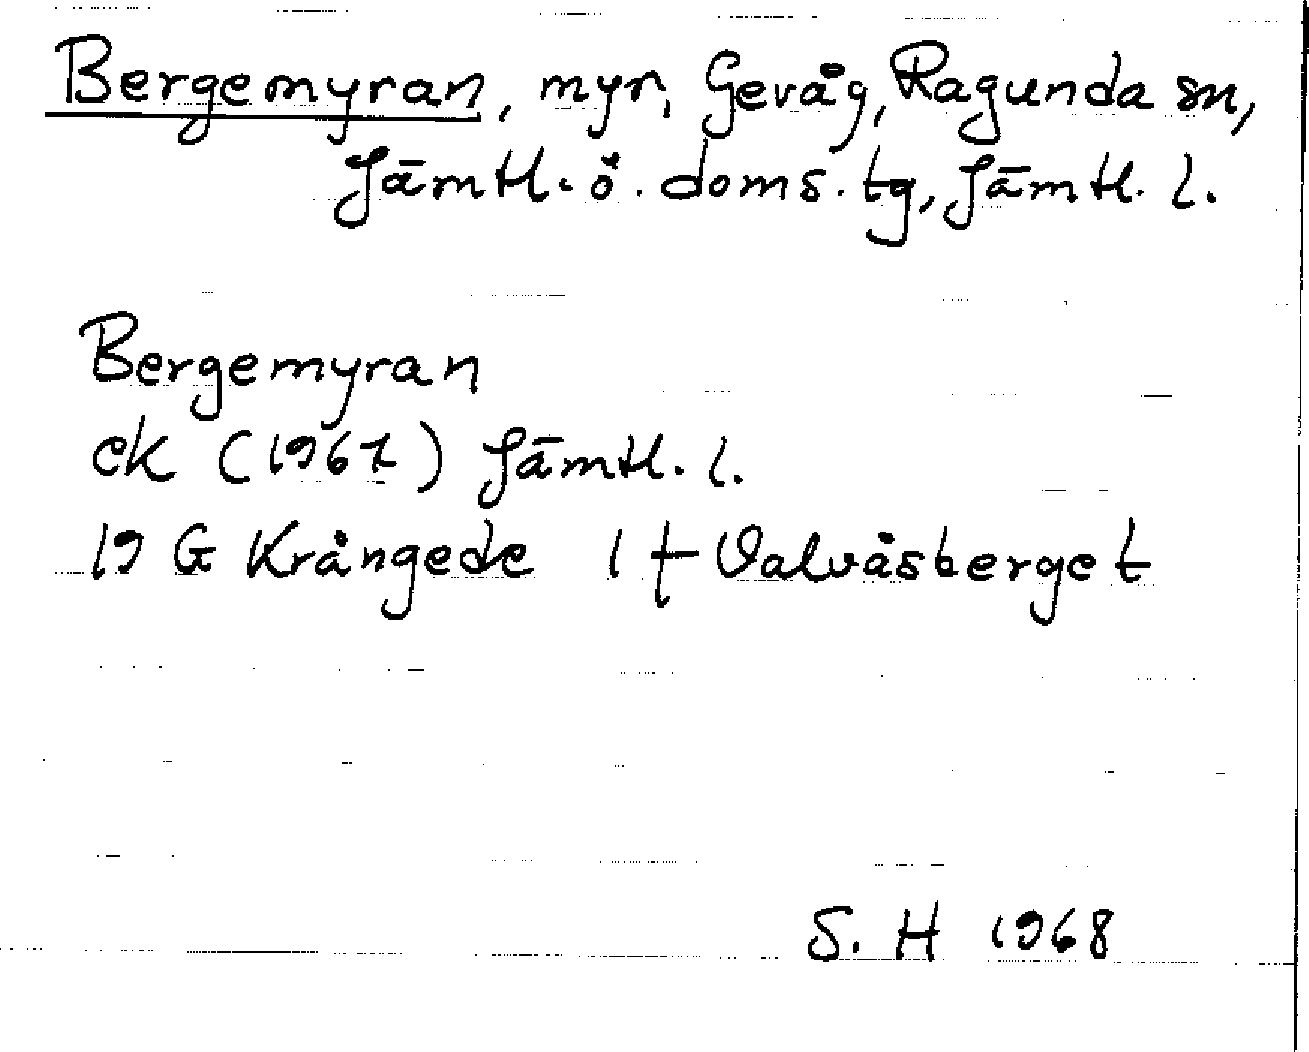 Bergemyran, myr, Gevåg, Ragunda sn,
Jämtl. ö. doms. tg, Jämtl. l.
Bergemyran
ek (1967) Jämtl. l.
19 G Krångede 1 f Valvåsberget
S. H 1968